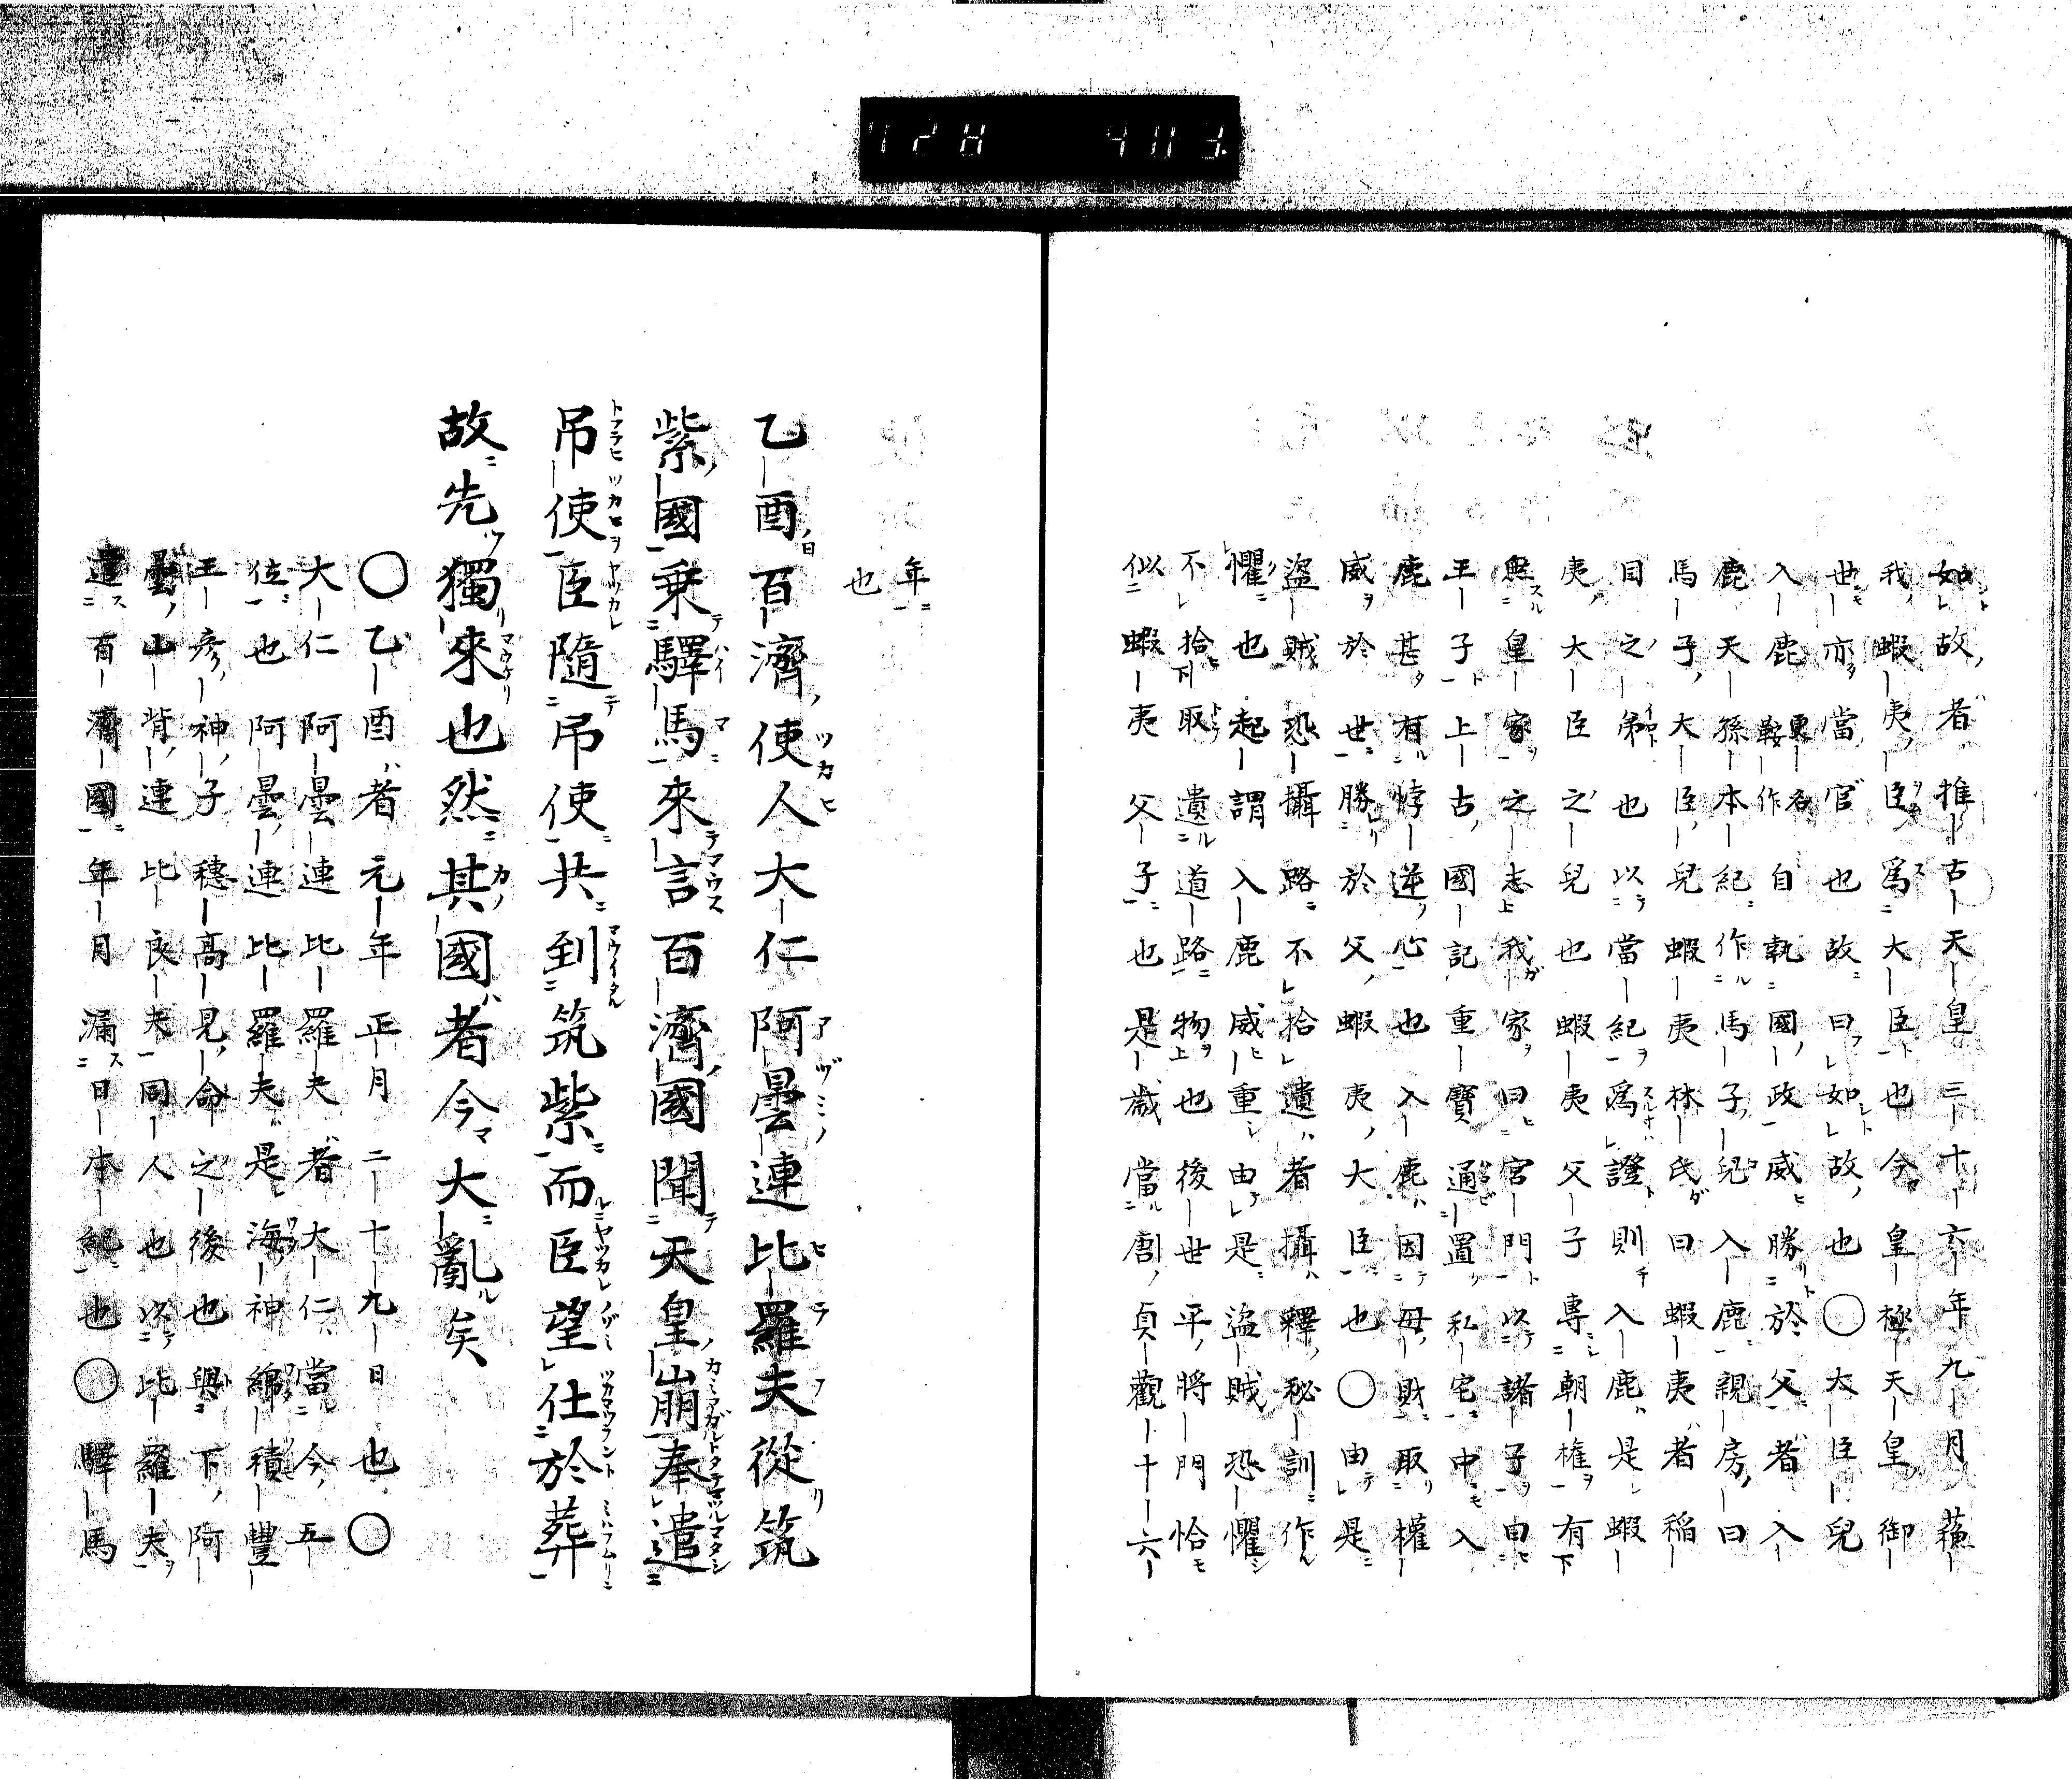 如故者推古天皇三十六年九月蘓
我蝦夷臣爲大臣也今皇極天皇御
世亦當官也故曰如故也〇大臣兒
入鹿更名鞍作自執國政威勝於父者入
鹿天孫本紀作馬子兒入鹿親房曰
馬子大臣兒蝦夷林氏曰蝦夷者稲
目之弟也以當紀爲證則入鹿是蝦
夷大臣之兒也蝦夷父子專朝権有
無皇家之志我家曰宮門以諸子曰
王子上古國記重寶通置私宅中入
鹿甚有悖逆心也入鹿因母財取權
威於世勝於父蝦夷大臣也〇由是
盜賊恐攝路不拾遺者攝釋秘訓作
懼也起謂入鹿威重由是盜賊恐懼
不拾取遺道路物也後世平將門恰
似蝦夷父子也是歲當唐貞觀十六
年
也
乙酉百濟使人大仁阿曇連比羅夫從筑
紫國乗驛馬來言百濟國聞天皇崩奉遣
吊使臣隨吊使共到筑紫而臣望仕於葬
故先獨來也然其國者今大亂矣
〇乙酉者元年正月二十九日也〇
大仁阿曇連比羅夫者大仁當今五
位也阿曇連比羅夫是海神綿積豐
玉彦神子穗高見命之後也與下阿
曇山背連比良夫同人也以比羅夫
遣百濟國年月漏日本紀也〇驛馬